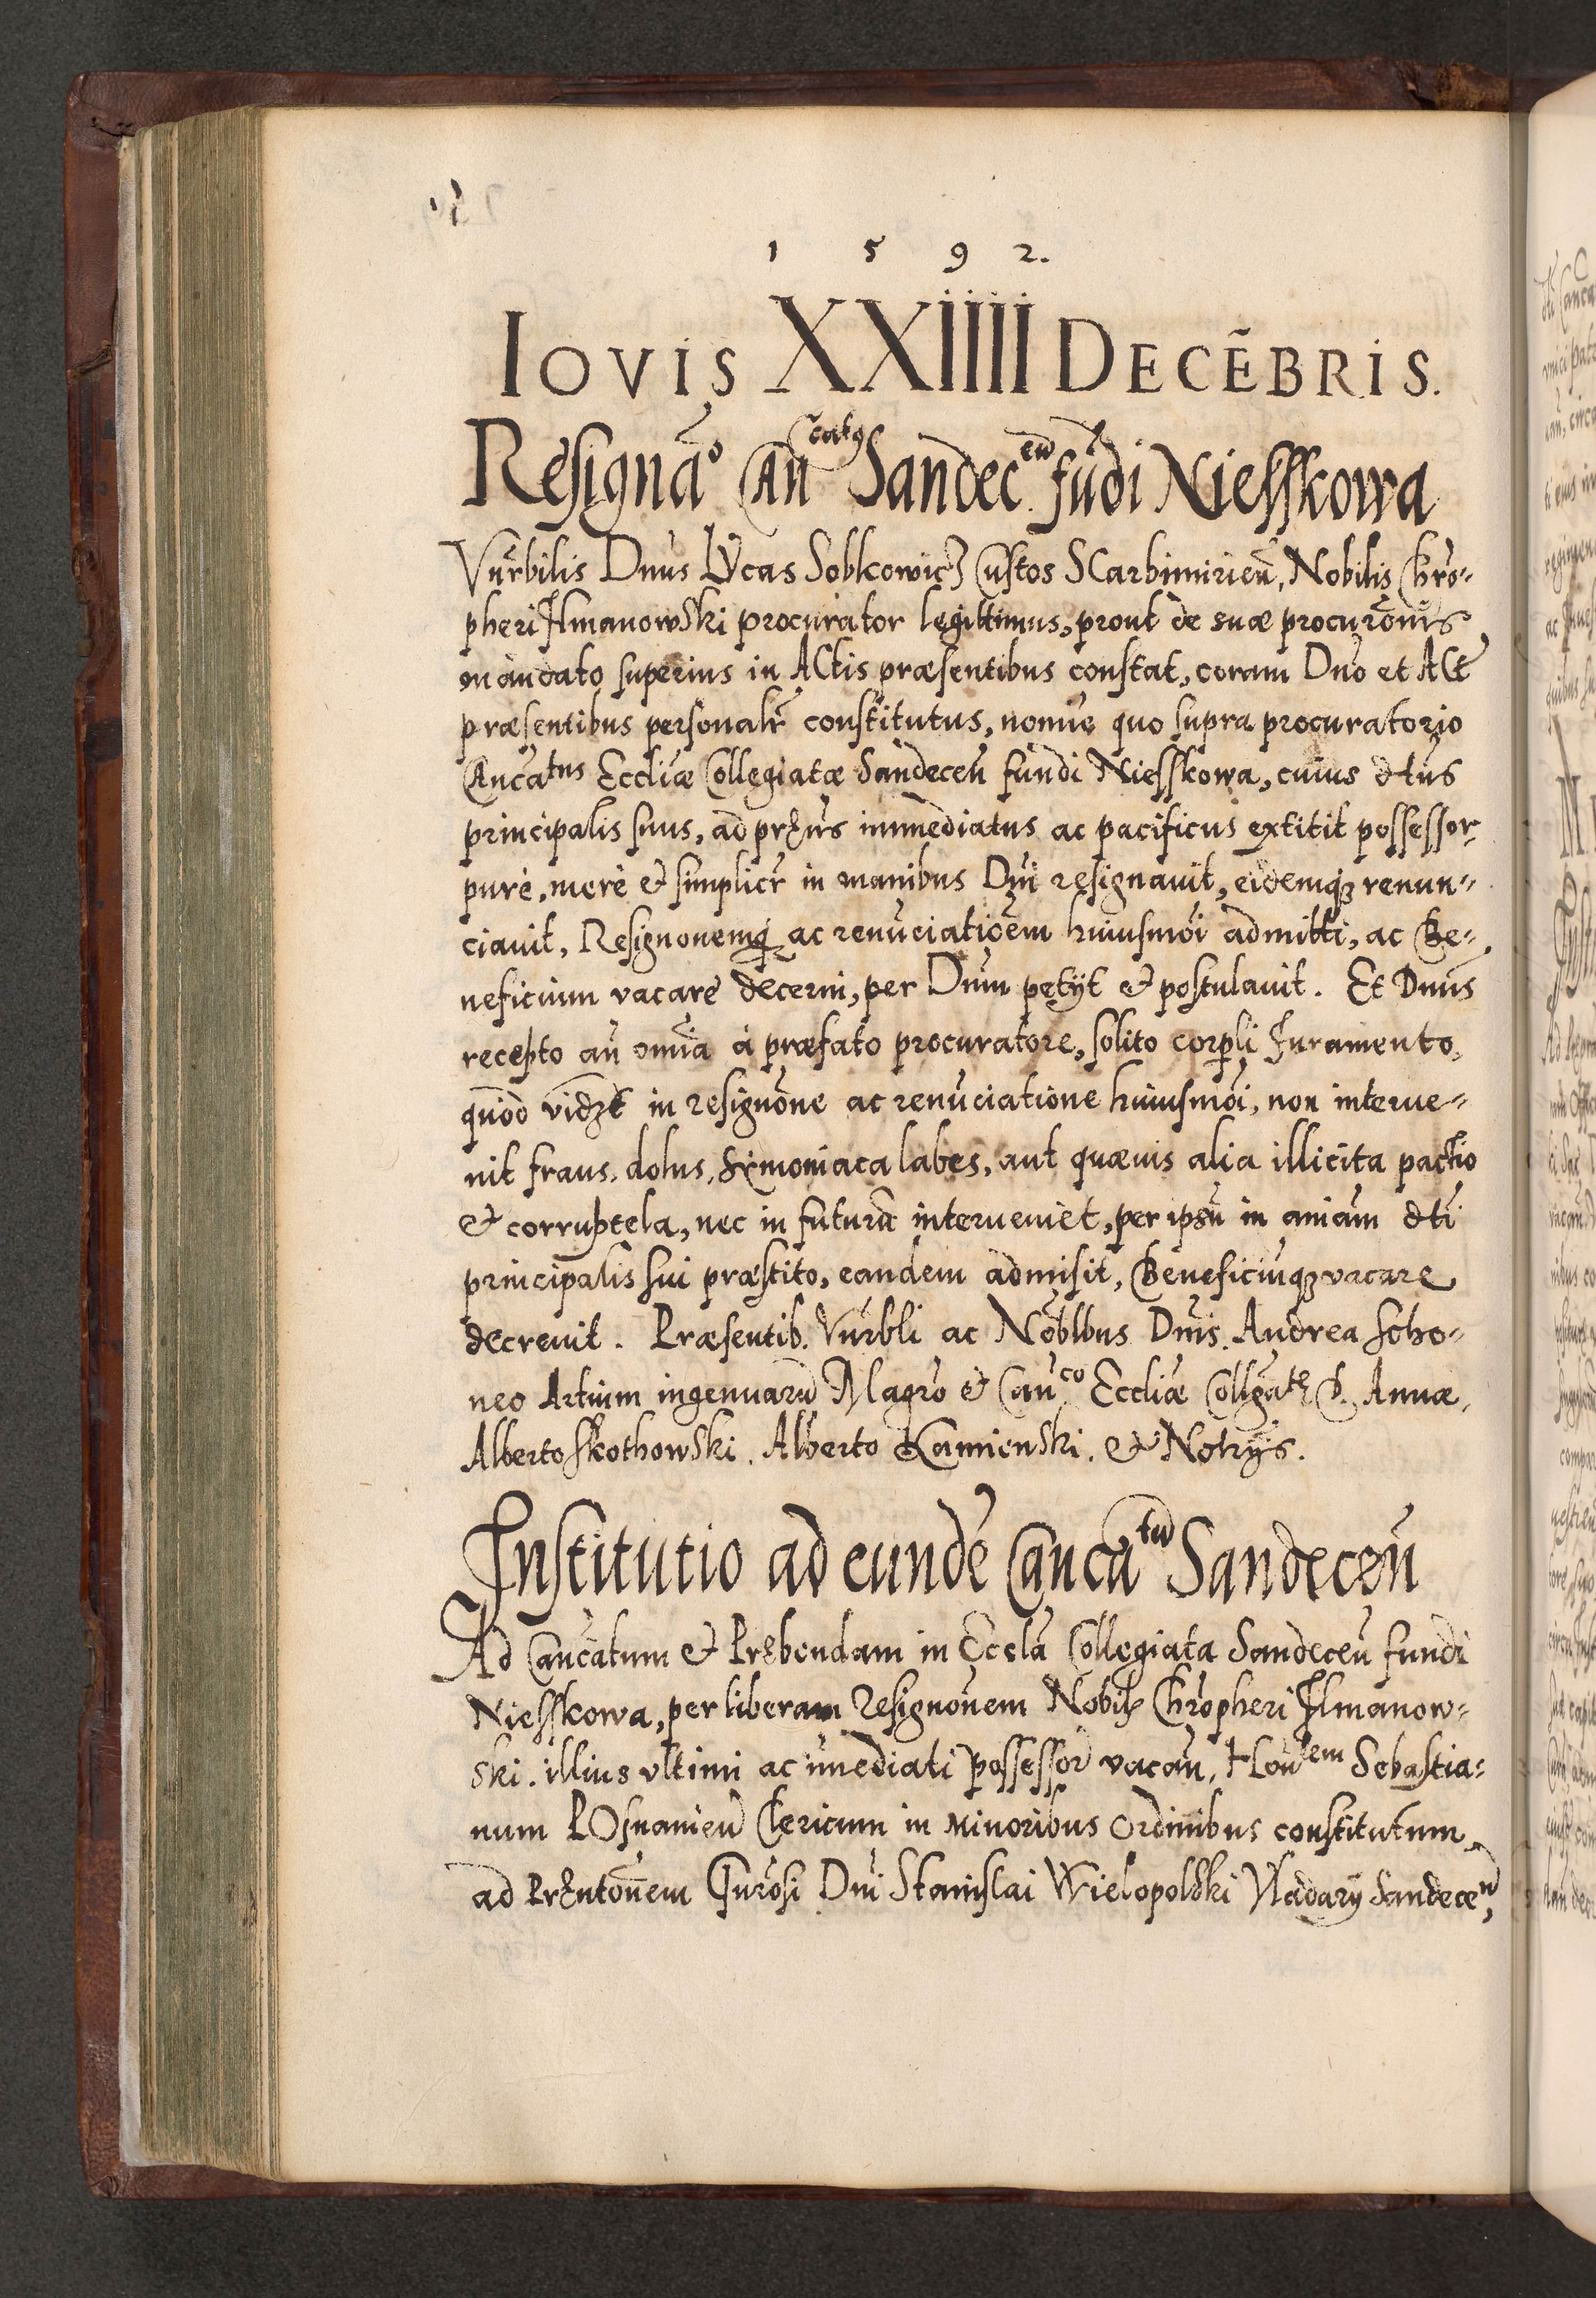 1 5 9 2.
IOVIS XXIIII DECĒBRIS.
Resignāo Cañcatus Sandeceñ fūdi Niesskowa
Vnrbilis Dnus LVcas Sobkowicz Custos SCarbimirieñ, Nobilis Chrō-
pheri Ilmanowski procurator legittimus, prout de suæ procurōnis
mandato superius in ACtis præsentibus constat, coram Dnō et ACt
præsentibus personalr constitutus, nomīe quo supra procuratorio
Cancatus Eccliæ Collegiatæ Sandeceñ fundi Niesskowa, cuius dtus
principalis suus, ad prens immediatus ac pacificus extitit possessor
purè, merè & simplicr in manibus Dni resignauit, eidemq3 renun-
ciauit, Resignonemq3 ac renūciatiōem huiusmōi admitti, ac Be-
neficium vacare decerni, per Dnum petijt & postulauit. Et Dnus
recepto añ omīa à præfato procuratore, solito corpli Iuramento,
quōd vidzt in resignōne ac renūciatione huiusmōi, non interue-
nit fraus, dolus, Symoniaca labes, aut quæuis alia illicita pactio
& corruptela, nec in futurū interueniet, per ipsū in aniam dti
principalis sui præstito, eandem admisit, Beneficiūq3 vacare
decreuit. Præsentib. Vnrbli ac Nōblbus Dnis. Andrea Scho-
neo Artium ingenuarū Magrō & Canco Eccliæ Collgate S. Annæ,
Alberto Skothowski. Alberto Kamienski. & Notrijs.
Institutio ad eundē Cancātū Sandeceñ
Ad Cancatum & Prebendam in Eccla Collegiata Sandeceñ fundi
Niesskowa, per liberam Resignōnem Nobilis Chrōpheri Ilmanow-
ski. illius vltimi ac īmediati possessor vacañ, Hon͞dem Sebastia-
num POsnanieñ Clericum in Minoribus Ordinibus constitutum
ad Prentōnem Gnrōsi Dni Stanislai Wielopolski Vladarij Sandeceñ,